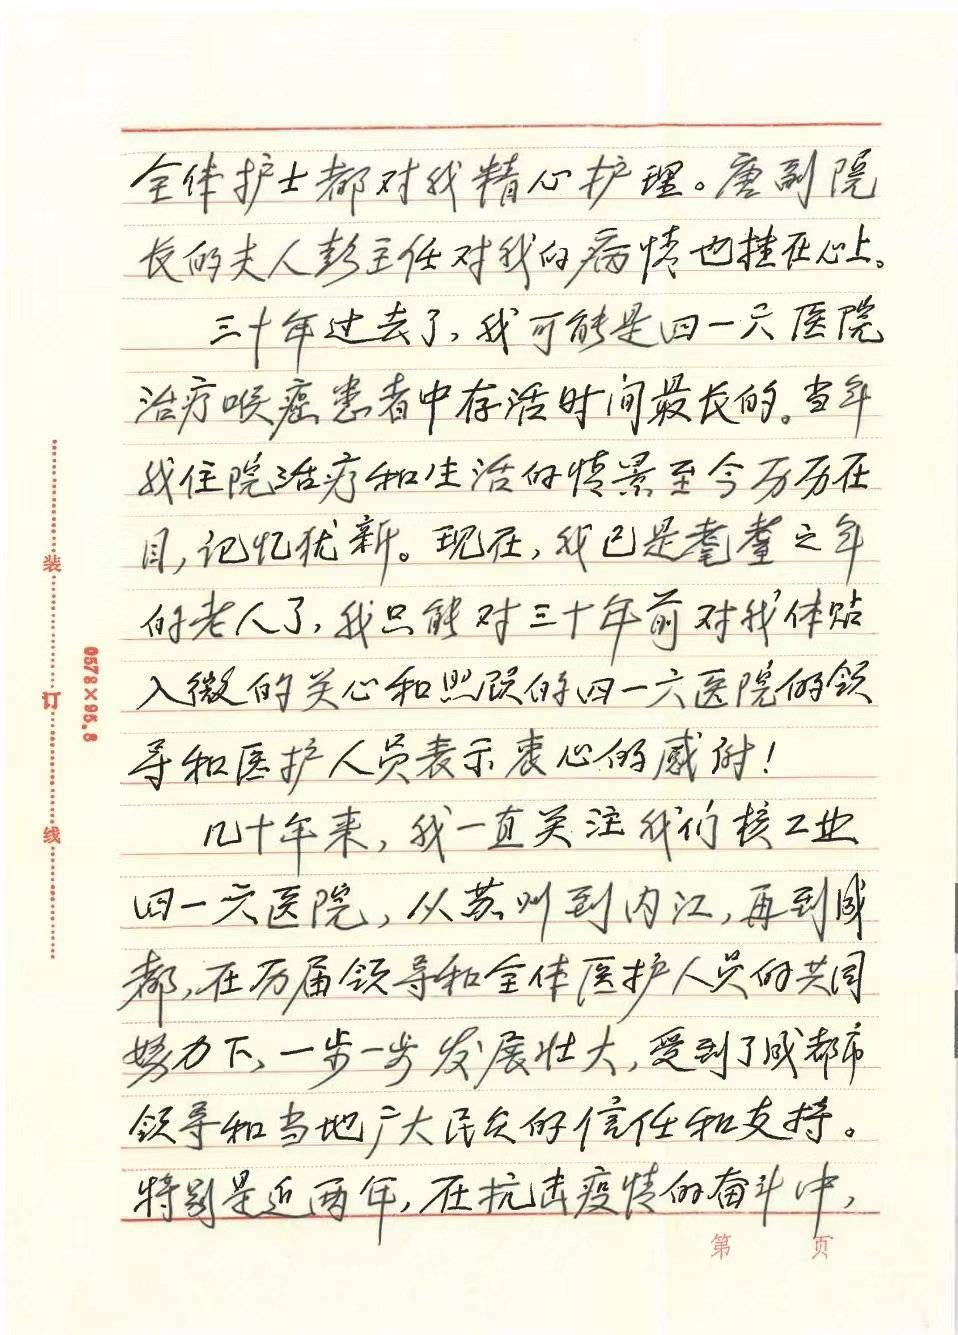 全体护士都对我精心护理。唐副院
长的夫人彭主任对我的病情也挂在心上。
三十年过去了,我可能是四一六医院
治疗喉癌患者中存活时间最长的。当年
我住院治疗和生活的情景至今历历在
目,记忆犹新。现在,我已是耄耋之年
的老人了,我只能对三十年前对我体贴
入微的关心和照顾的四一六医院的领
导和医护人员表示衷心的感谢!
几十年来,我一直关注我们核工业
四一六医院,从苏州到内江,再到成
都,在历届领导和全体医护人员的共同
努力下,一步一步发展壮大,受到了成都市
领导和当地广大民众的信任和支持。
特别是近两年,在抗击疫情的奋斗中,
装
订
线
0578×95.8
第 页